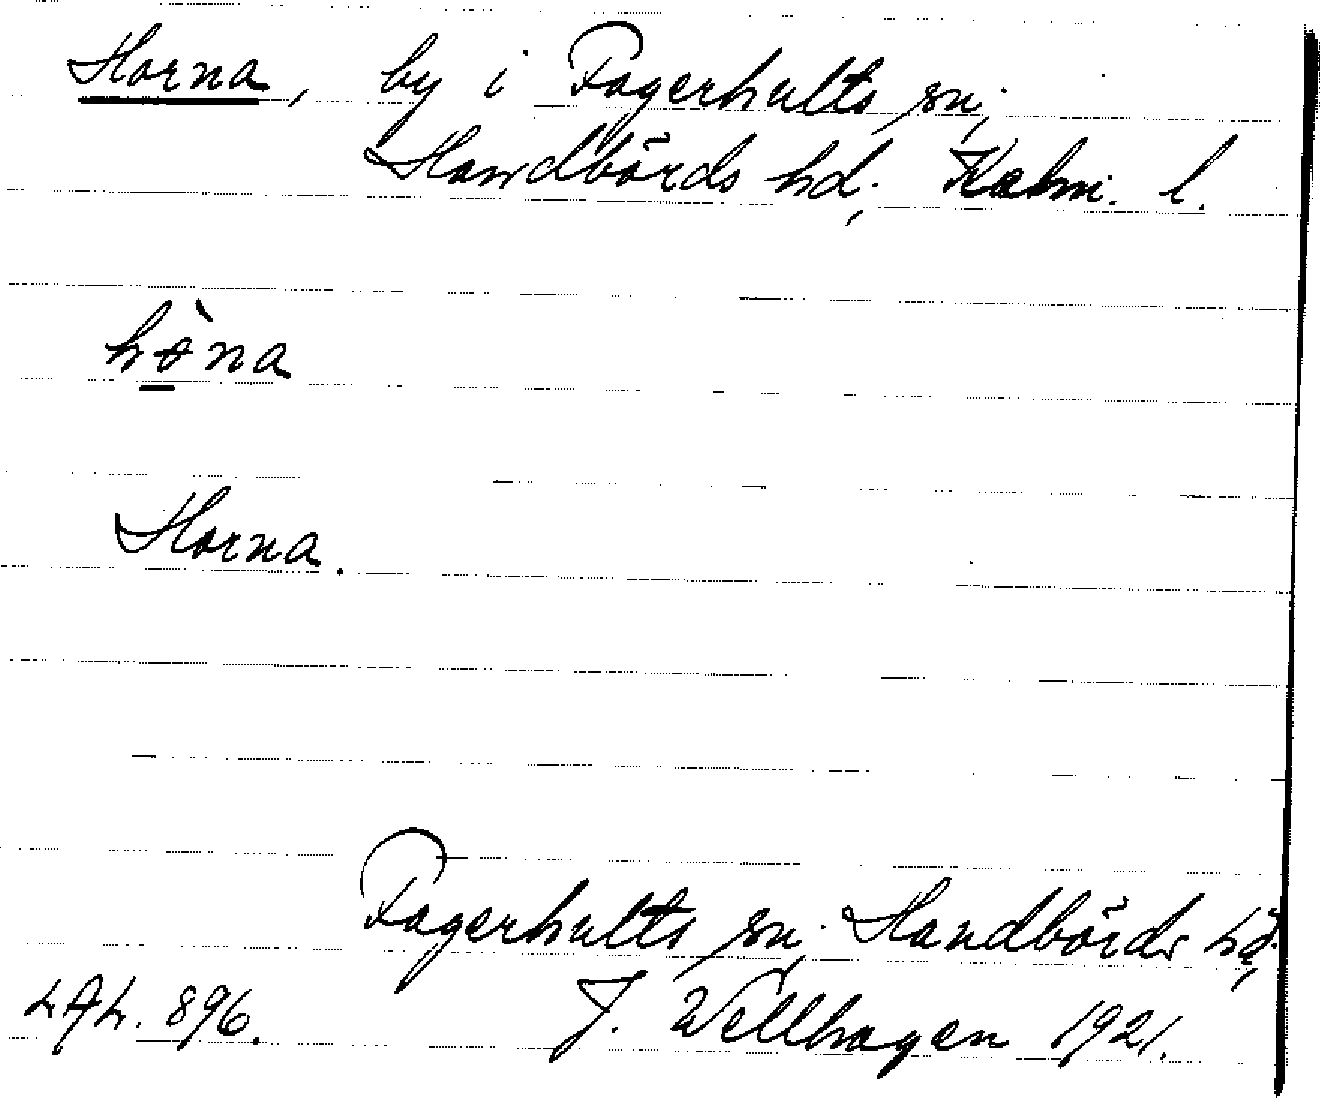 Horna, by i Fagerhults sn,
Handbörds hd, Kalm. l.
hò̱na
Horna.
Fagerhults sn. Handbörds hd,
LAL. 896. J. Wellhagen 1921.